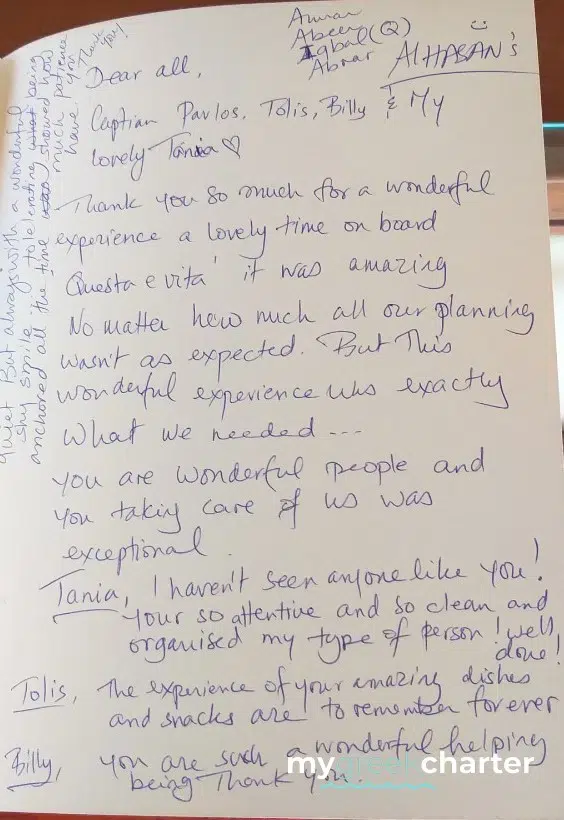 Abeer
Iqbal (Q)
Abrar
AlHASAN's
Dear all,
Captian Pavlos, Tolis, Billy & My
lovely Tania ♡
Thank you so much for a wonderful
experience a lovely time on board
Questa e vita' it was amazing
No matter how much all our planning
wasn't as expected. But This
wonderful experience was exactly
What we needed ---
you are wonderful people and
you taking care of us was
exceptional.
Tania, I haven't seen anyone like you!
Your so attentive and so clean and
organised my type of person! well
done!
Tolis, The experience of your amazing dishes
and snacks are to remember forever
Billy, you are such a wonderful helping
being Thank you.
quiet But always with a wonderful
shy smile tolerating what being
anchored all the time showed how
much patience
you have.
Thank
you!
mygreekcharter